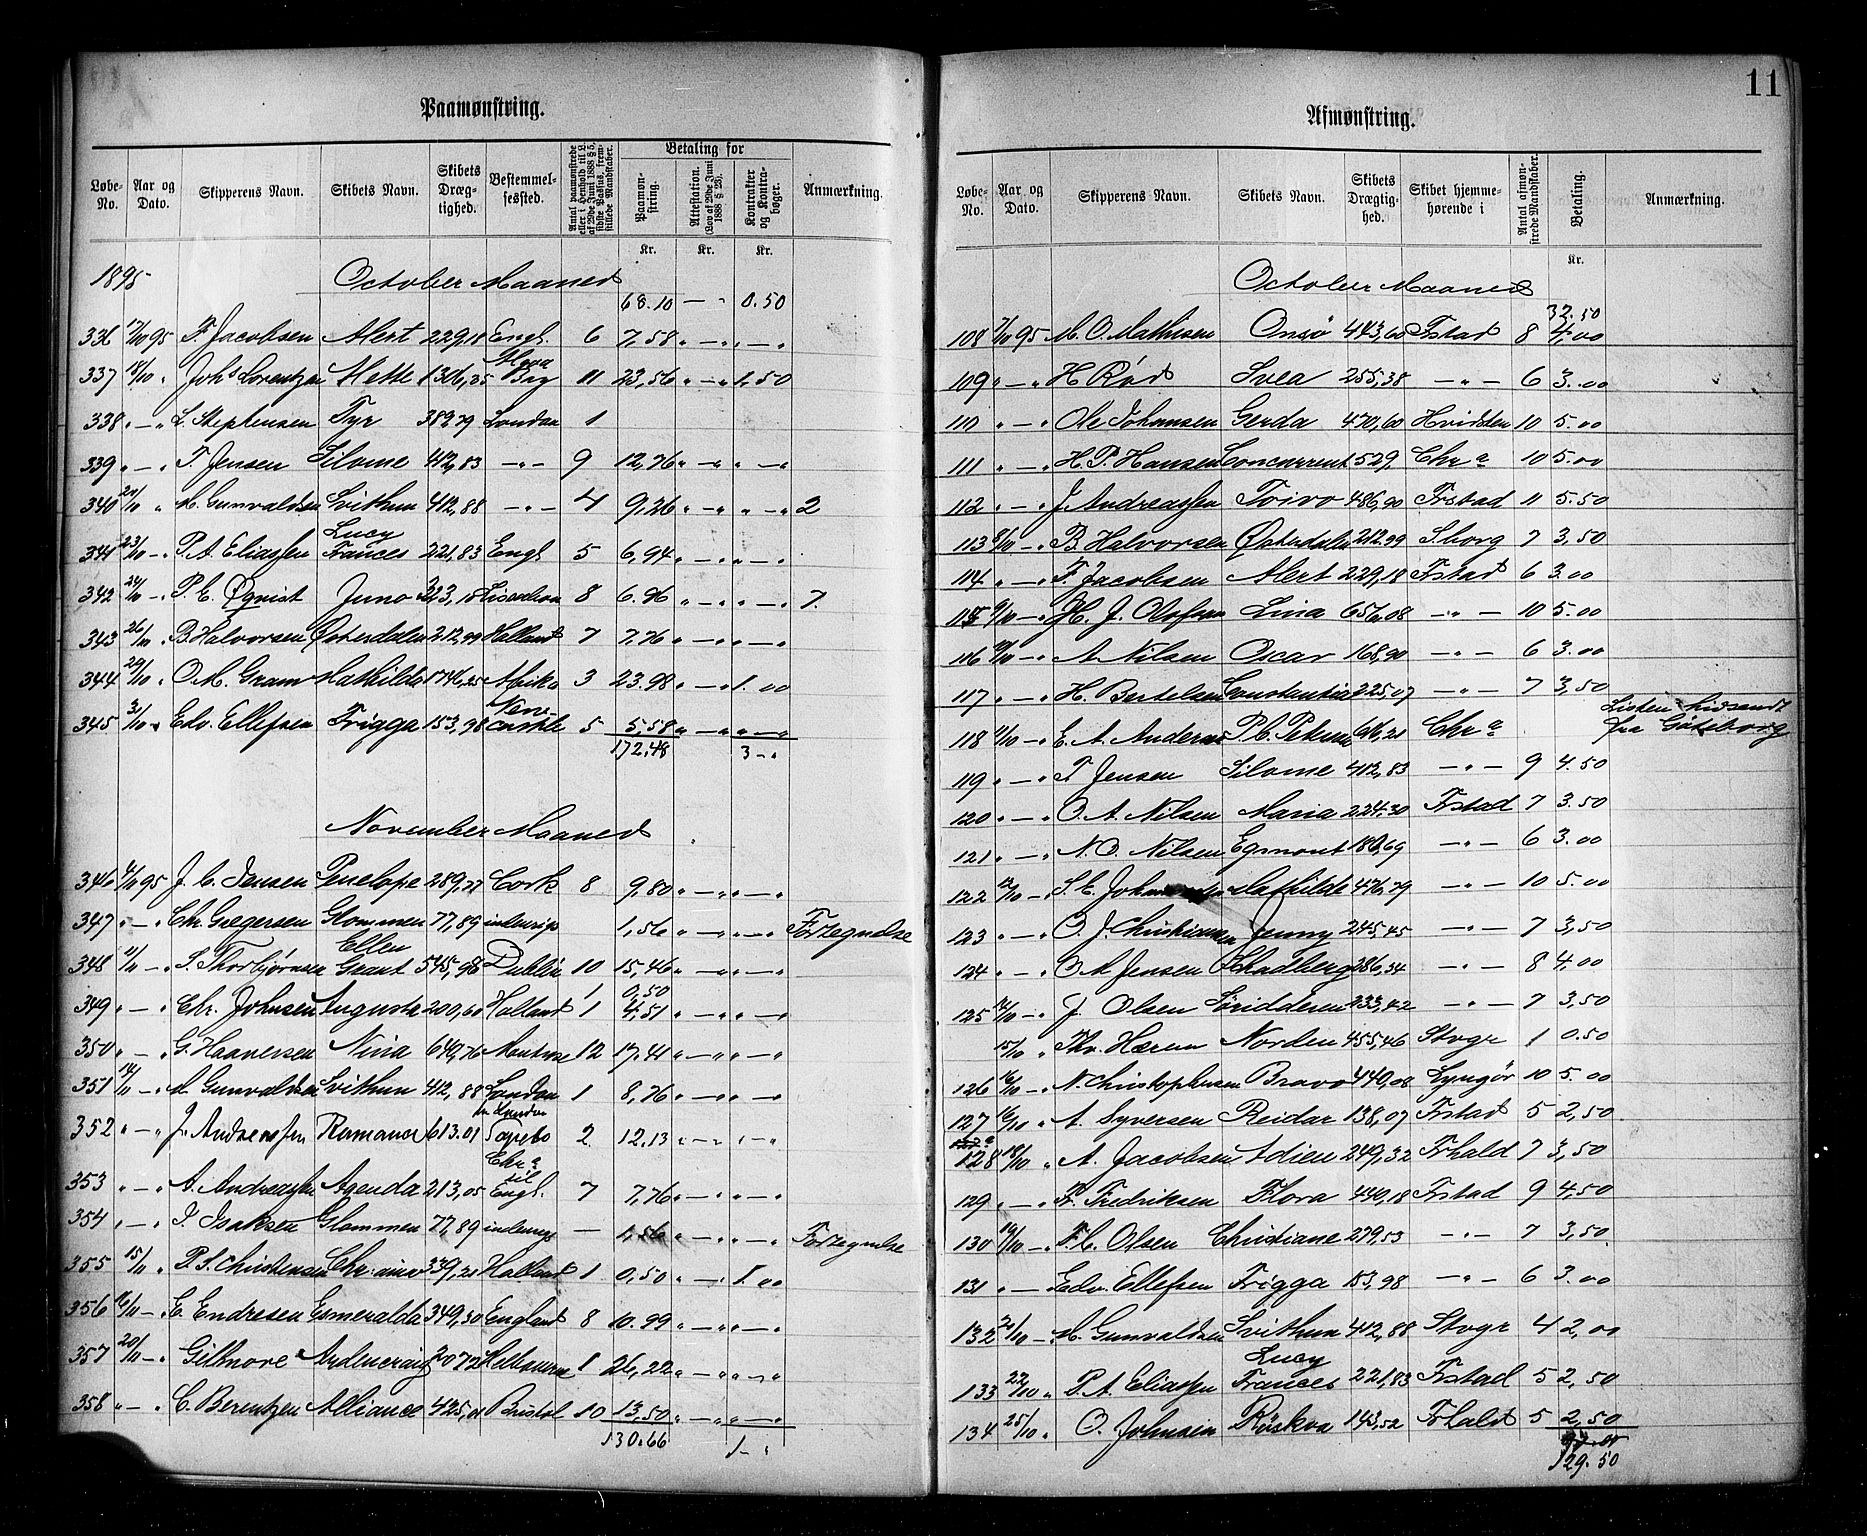 11
Paamønstring.
Løbe-No. | Aar og Dato. | Skipperens Navn. | Skibets Navn. | Skibets Dræg-tighed. | Bestemmel-sessted. | Antal paamønstrede eller i Henhold til L. af 29de Juni 1888 § 5, sidste Passus, frem-stillede Mandskaber. | Betaling for | Paamøn-string. | Attestation. (Lov af 29de Juni 1888 § 23). | Kontrakter og Kontra-bøger. | Anmærkning.
Kr. Kr. Kr.
1895 October Maaned
68.10 — " 0.50
336 17/10 95 F. Jacobsen Alert 229,18 Engl. 6 7,58 " — " — "
337 18/10 " Johs Lorentzen Mette 1306,25 Bay 11 23,56 " — " 1,50
338 " — " L. Stephensen Tyr 389,79 London 1
339 " — " T. Jensen Silome 412,83 — " — 9 12,76 " — " " — "
340 20/10 " M. Gunvaldsen Svithun 412,88 — " — 4 9,26 " — " " — " 2
341 23/10 — " P. A. Eliassen Lucy Frances 221,83 Engl 5 6,94 " — " " — "
342 24/10 — " P. E. Øqvist Juno 223,18 8 6.96 " — " " — " 7.
343 26/10 — " B. Halvorsen Østerdalen 212,99 Holland 7 7,76 " — " " — "
344 29/10 — " O. M. Gram Mathilda 1746,25 Afrika 3 23.98 " — " 1.00
345 31/10 " Edv. Ellefsen Frigga 153,98 New-castle 5 5,58 " — " " — "
172,48 3 - "
November Maaned
346 4/11 95 J. C. Jensen Penelope 289,27 Cork 8 9,80 " — " " — "
347 " — " Chr. Gregersen Glommen 77,89 indenrigs 1,56 " — " " — " Fortegnelse
348 11/11 — " S. Thorbjørnsen Ellen Grant 545,98 Dublin 10 15,46 " — " " — "
349 " — " Chr. Johnsen Augusta 200,60 Holland 1 1 0,50 4,51 " — " " — "
350 " — " G. Haaversen Nina 649,76 Montrose 12 17.41 " — " " — "
351 14/11 — " M Gunvaldsen Svithun 412,88 London 1 8,76 " — " " — "
352 " — " J. Andreassen Romance 613.01 2 12.13 " — " " — "
353 " — " A. Andreassen Agenda 213,05 Chr.a til Engl. 7 7,76 " — " " — "
354 " — " J. Isaksen Glommen 77,89 indenrigs — 1,56 " — " " — " Fortegnelse
355 15/11 " P. S. Christensen 339,21 Holland 1 0,50 " — " 1.00
356 16/11 — " C. Endresen Esmeralda 349,30 England 8 10.99 " — " " — "
357 20/11 — " Gillmore Ardencraig 2072 Melbourne 1 26,22 " — " " — "
358 " — " C. Berentzen Alliance 425,01 Bristol 10 13,50 " — " " — "
130.66 1 - "
Afmønstring.
Løbe-No. | Aar og Dato. | Skipperens Navn. | Skibets Navn. | Skibets Drægtig-hed. | Skibet hjemme-hørende i | Antal afmøn-strede Mandskaber. | Betaling. | Anmærkning.
Kr.
October Maaned
32.50
108 7/10 95 M. O. Mathisen Onsø 443,60 Frstad 8 4,00
109 " — " H Rød Svea 255,38 — " — 6 3.00
110 " — " Ole Johansen Gerda 470,60 Hvidsten 10 5.00
111 " — " H. P. Hansen Concurrent 529, Chr a 10 5.00
112 " — " J. Andreassen Toivo 486,90 Frstad 11 5.50
113 8/10 — " B. Halvorsen Østerdalen 212.99 S.borg 7 3,50
114 " — " F. Jacobsen Alert 229,18 Frstad 6 3.00
115 9/10 — " H. J. Olofsson Lina 656,08 — " — 10 5.00
116 10/10 — " A. Nilsen Oscar 168,90 — " — 6 3.00
117 " — " H. Bertelsen Constantia 225,07 — " — 7 3,50
118 11/10 — " E. A. Andersen P. C. Petersen 616,21 Chr a Listen indsendt fra Göteborg
119 " — " T Jensen Silome 412,83 — " — 9 4.50
120 " — " O. A. Nilsen Maria 224.30 Frstad 7 3.50
121 " — " N. O. Nilsen Egmont 180,69 — " — 6 3.00
122 12/10 — " S. E. Johannesen Mathilde 476,79 — " — 10 5.00
123 " — " O. J. Christiansen Jenny 245,45 — " — 7 3,50
124 " — " O A Jensen Skadberg 286,34 — " — 8 4,00
125 14/10 — " J. Olsen Søridderen 233,42 — " — 7 3,50
15/10 " Thv. Hæren Norden 455,46 Stvgr 1 0.50
126 16/10 — " N. Christophersen Bravo 440,08 Lyngør 10 5.00
127 16/10 " A. Syversen Reidar 138,07 Frstad 5 2,50
127a
128 18/10 " A. Jacobsen Adien 249,32 Frhald 7 3,50
129 " — " Fr. Fredriksen Flora 440,18 Frstad 9 4,50
130 19/10 — " F. C. Olsen Christiane 279,53 — " — 7 3,50
131 " — " Edv. Ellefsen Frigga 153,98 — " — 6 3.00
132 21/10 — " M. Gunvaldsen Svithun 412,88 Stvgr 4 2,00
133 22/10 " P. A. Eliassen Lucy Frances 221,83 Frstad 5 2,50
134 25/10 " O. Johnsen Røskva 143,52 Frhald 5 2,50
129.50